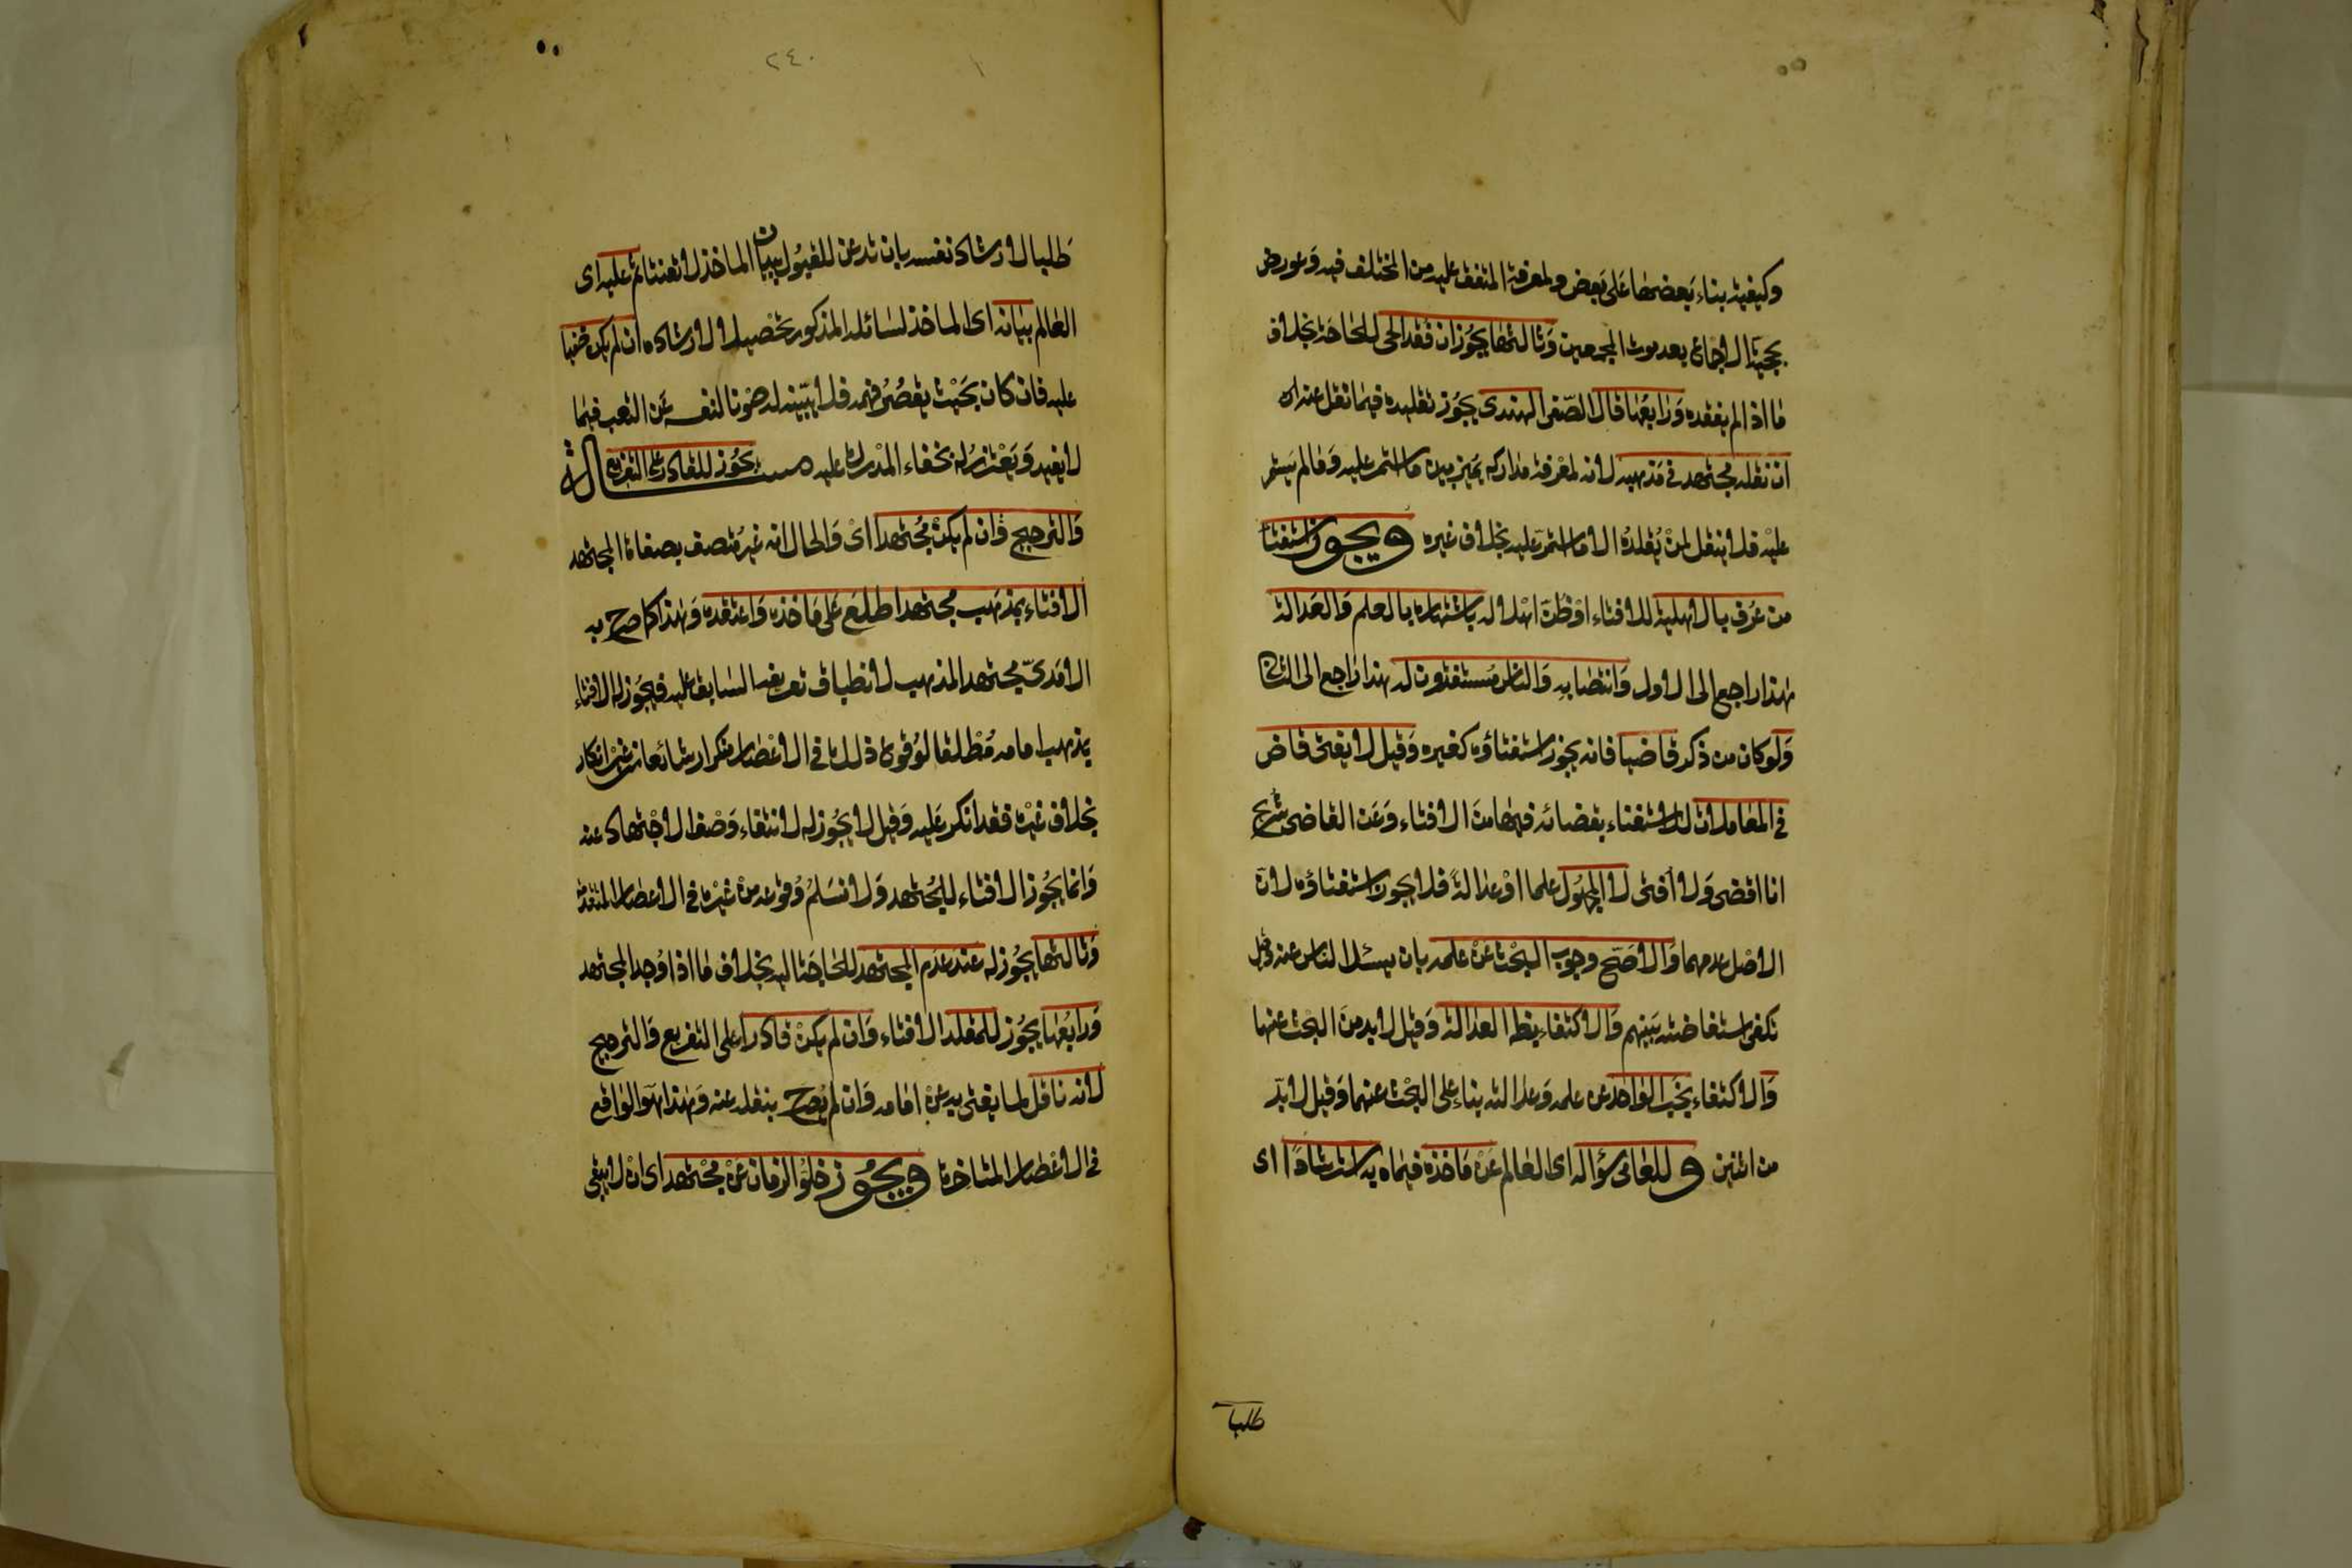 وكيفية بناء بعضها على بعض ولمعرفة المتفق عليه من المختلف فيه وعورض
بحجية الاجماع بعد موت المجمعين وثالثها يجوز ان فقد الحى للحاجة بخلاف
ما اذا لم يفقد ورابعها قال الصفى الهندى يجوز تقليده فيما نقل عنه
ان نقله مجتهد فى مذهبه لانه لمعرفة مداركه يميز بين ما استمر عليه وما لم يستمر
عليه فلا ينقل لمن يقلده الا ما استمر عليه بخلاف غيره ويجوز استفتا
من عرف بالاهلية للافتاء او ظن اهلا له باشتهاره بالعلم والعدالة
هذا راجع الى الاول وانتصابه والناس مستفتون له هذا راجع الى الثانى
ولو كان من ذكر قاضيا فانه يجوز استفتاؤه كغيره وقيل لا يفتى قاض
فى المعاملات للاستغناء بقضائه فيها من الافتاء وعن القاضى شريح
انا اقضى ولا أفتى لا المجهول علما او عدالة فلا يجوز استفتاؤه لان
الاصل عدمهما والاصح وجوب البحث عن علمه بان يسئل الناس عنه وقيل
تكفى استفاضته بينهم والاكتفاء بظاهر العدالة وقيل لا بد من البحث عنها
والاكتفاء بخبر الواحد عن علمه وعدالته بناء على البحث عنهما وقيل لا بد
من اثنين وللعامى سؤاله اى العالم عن ماخذه فيما افتاه به استرشادا اى
طلبا
٢٤٠
طلبا لارشاد نفسه بان تذعن للقبول ببيان الماخذ لا تعنتا ثم عليه اى
العالم بيانه اى الماخذ لسائله المذكور تحصيلا لارشاده ان لم يكن خفيا
عليه فان كان بحيث يقصر فهمه فلا يبينه له صونا لنفسه عن التعب فيما
لا يفيد ويعتذر له بخفاء المدرك عليه مسالة يجوز للقادر على التفريع
والترجيح وان لم يكن مجتهدا اى والحال انه غير متصف بصفات المجتهد
الافتاء بمذهب مجتهد اطلع على ماخذه واعتقده وهذا كما صرح به
الامدى مجتهد المذهب لانطباق تعريفه السابق عليه فيجوز له الافتاء
بمذهب امامه مطلقا لوقوع ذلك فى الاعصار متكررا شائعا من غير انكار
بخلاف غيره فقد انكر عليه وقيل لا يجوز له لانتفاء وصف الاجتهاد عنه
وانما يجوز الافتاء للمجتهد ولا نسلم وقوعه من غيره فى الاعصار المتقدمة
وثالثها يجوز له عند عدم المجتهد للحاجة اليه بخلاف ما اذا وجد المجتهد
ورابعها يجوز للمقلد الافتاء وان لم يكن قادرا على التفريع والترجيح
لانه ناقل لما يفتى به عن امامه وان لم يصرح بنقله عنه وهذا هو الواقع
فى الاعصار المتاخرة ويجوز خلو الزمان عن مجتهد اى ان لا يبقى